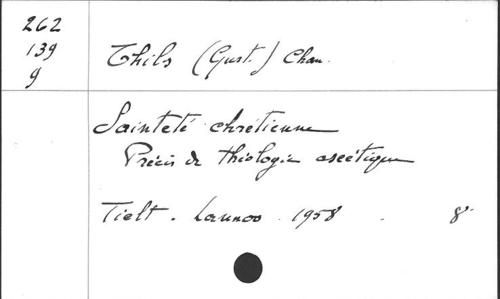 262
139
g
Thils (Gust.) Chan.
Sainteté chrétienne
Précis de théologie ascétique
Tielt. Lannoo. 1958. 8°